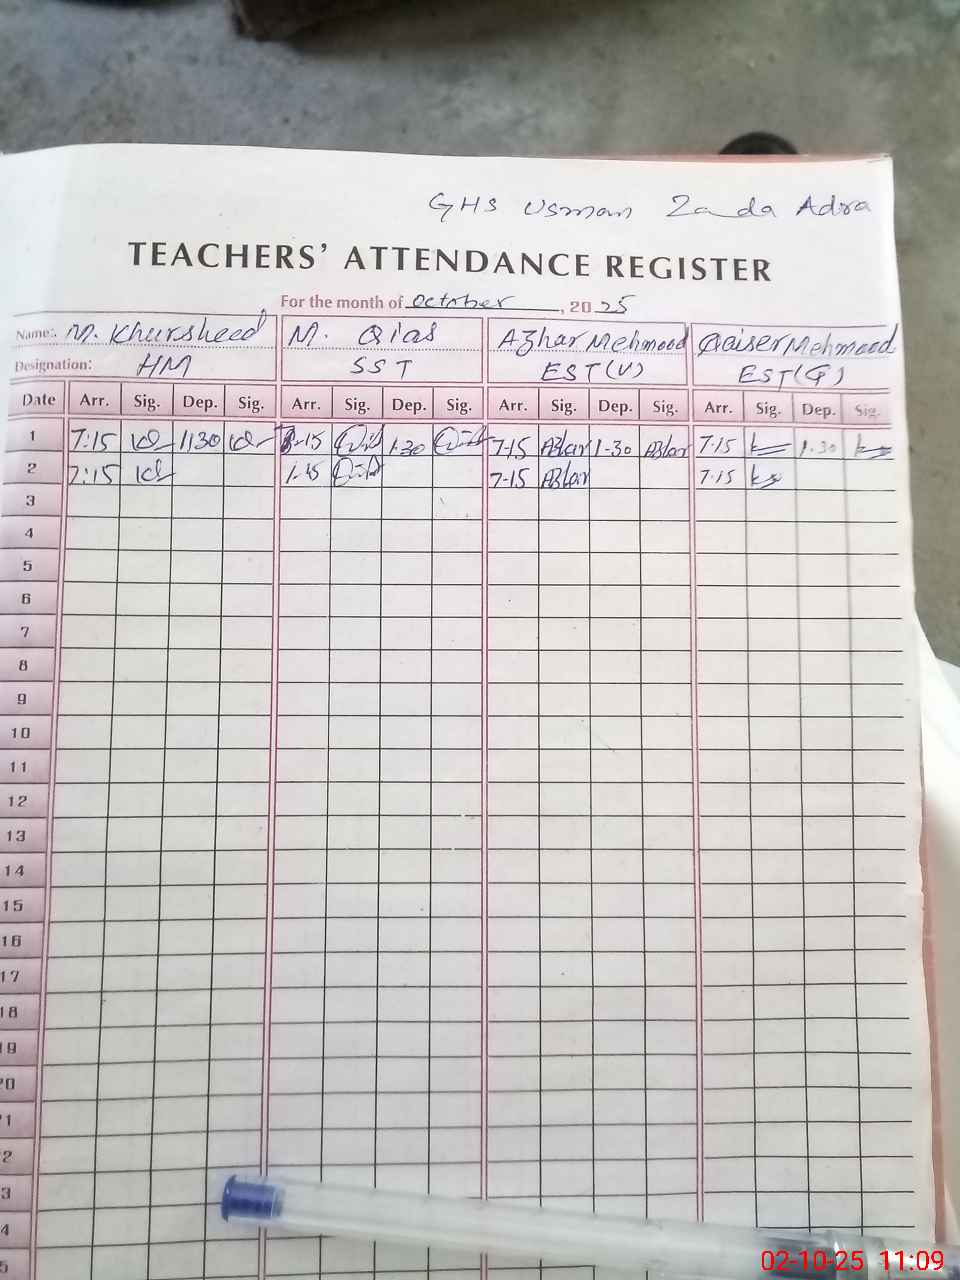 GHS Usman Zada Adra
TEACHERS' ATTENDANCE REGISTER
For the month of October, 2025
Name:. M. Khursheed M. Qias Azhar Mehmood Qaiser Mehmood
Designation: HM SST EST(V) EST(G)
Date Arr. Sig. Dep. Sig. Arr. Sig. Dep. Sig. Arr. Sig. Dep. Sig. Arr. Sig. Dep. Sig.
1 7:15 1:30 7-15 1:30 7-15 Azhar 1-30 Azhar 7-15 1.30
2 7:15 7-15 Azhar 7-15
3
4
5
6
7
8
9
10
11
12
13
14
15
16
17
18
19
20
02-10-25 11:09